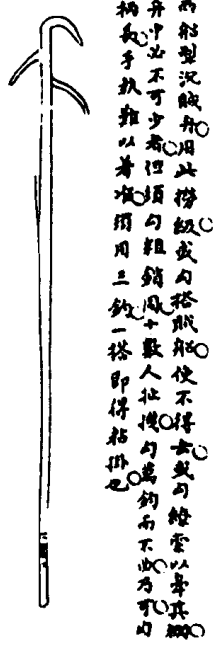 兩船犁沉賊舟用此撈級或勾搭賊船使不得去或勾繚索以牽其棚
舟中必不可少者但須勾粗銷用十數人扯拽勾萬鈞而不曲乃可勾
柄長手執難以着准須用三鈎一搭即得粘掛也